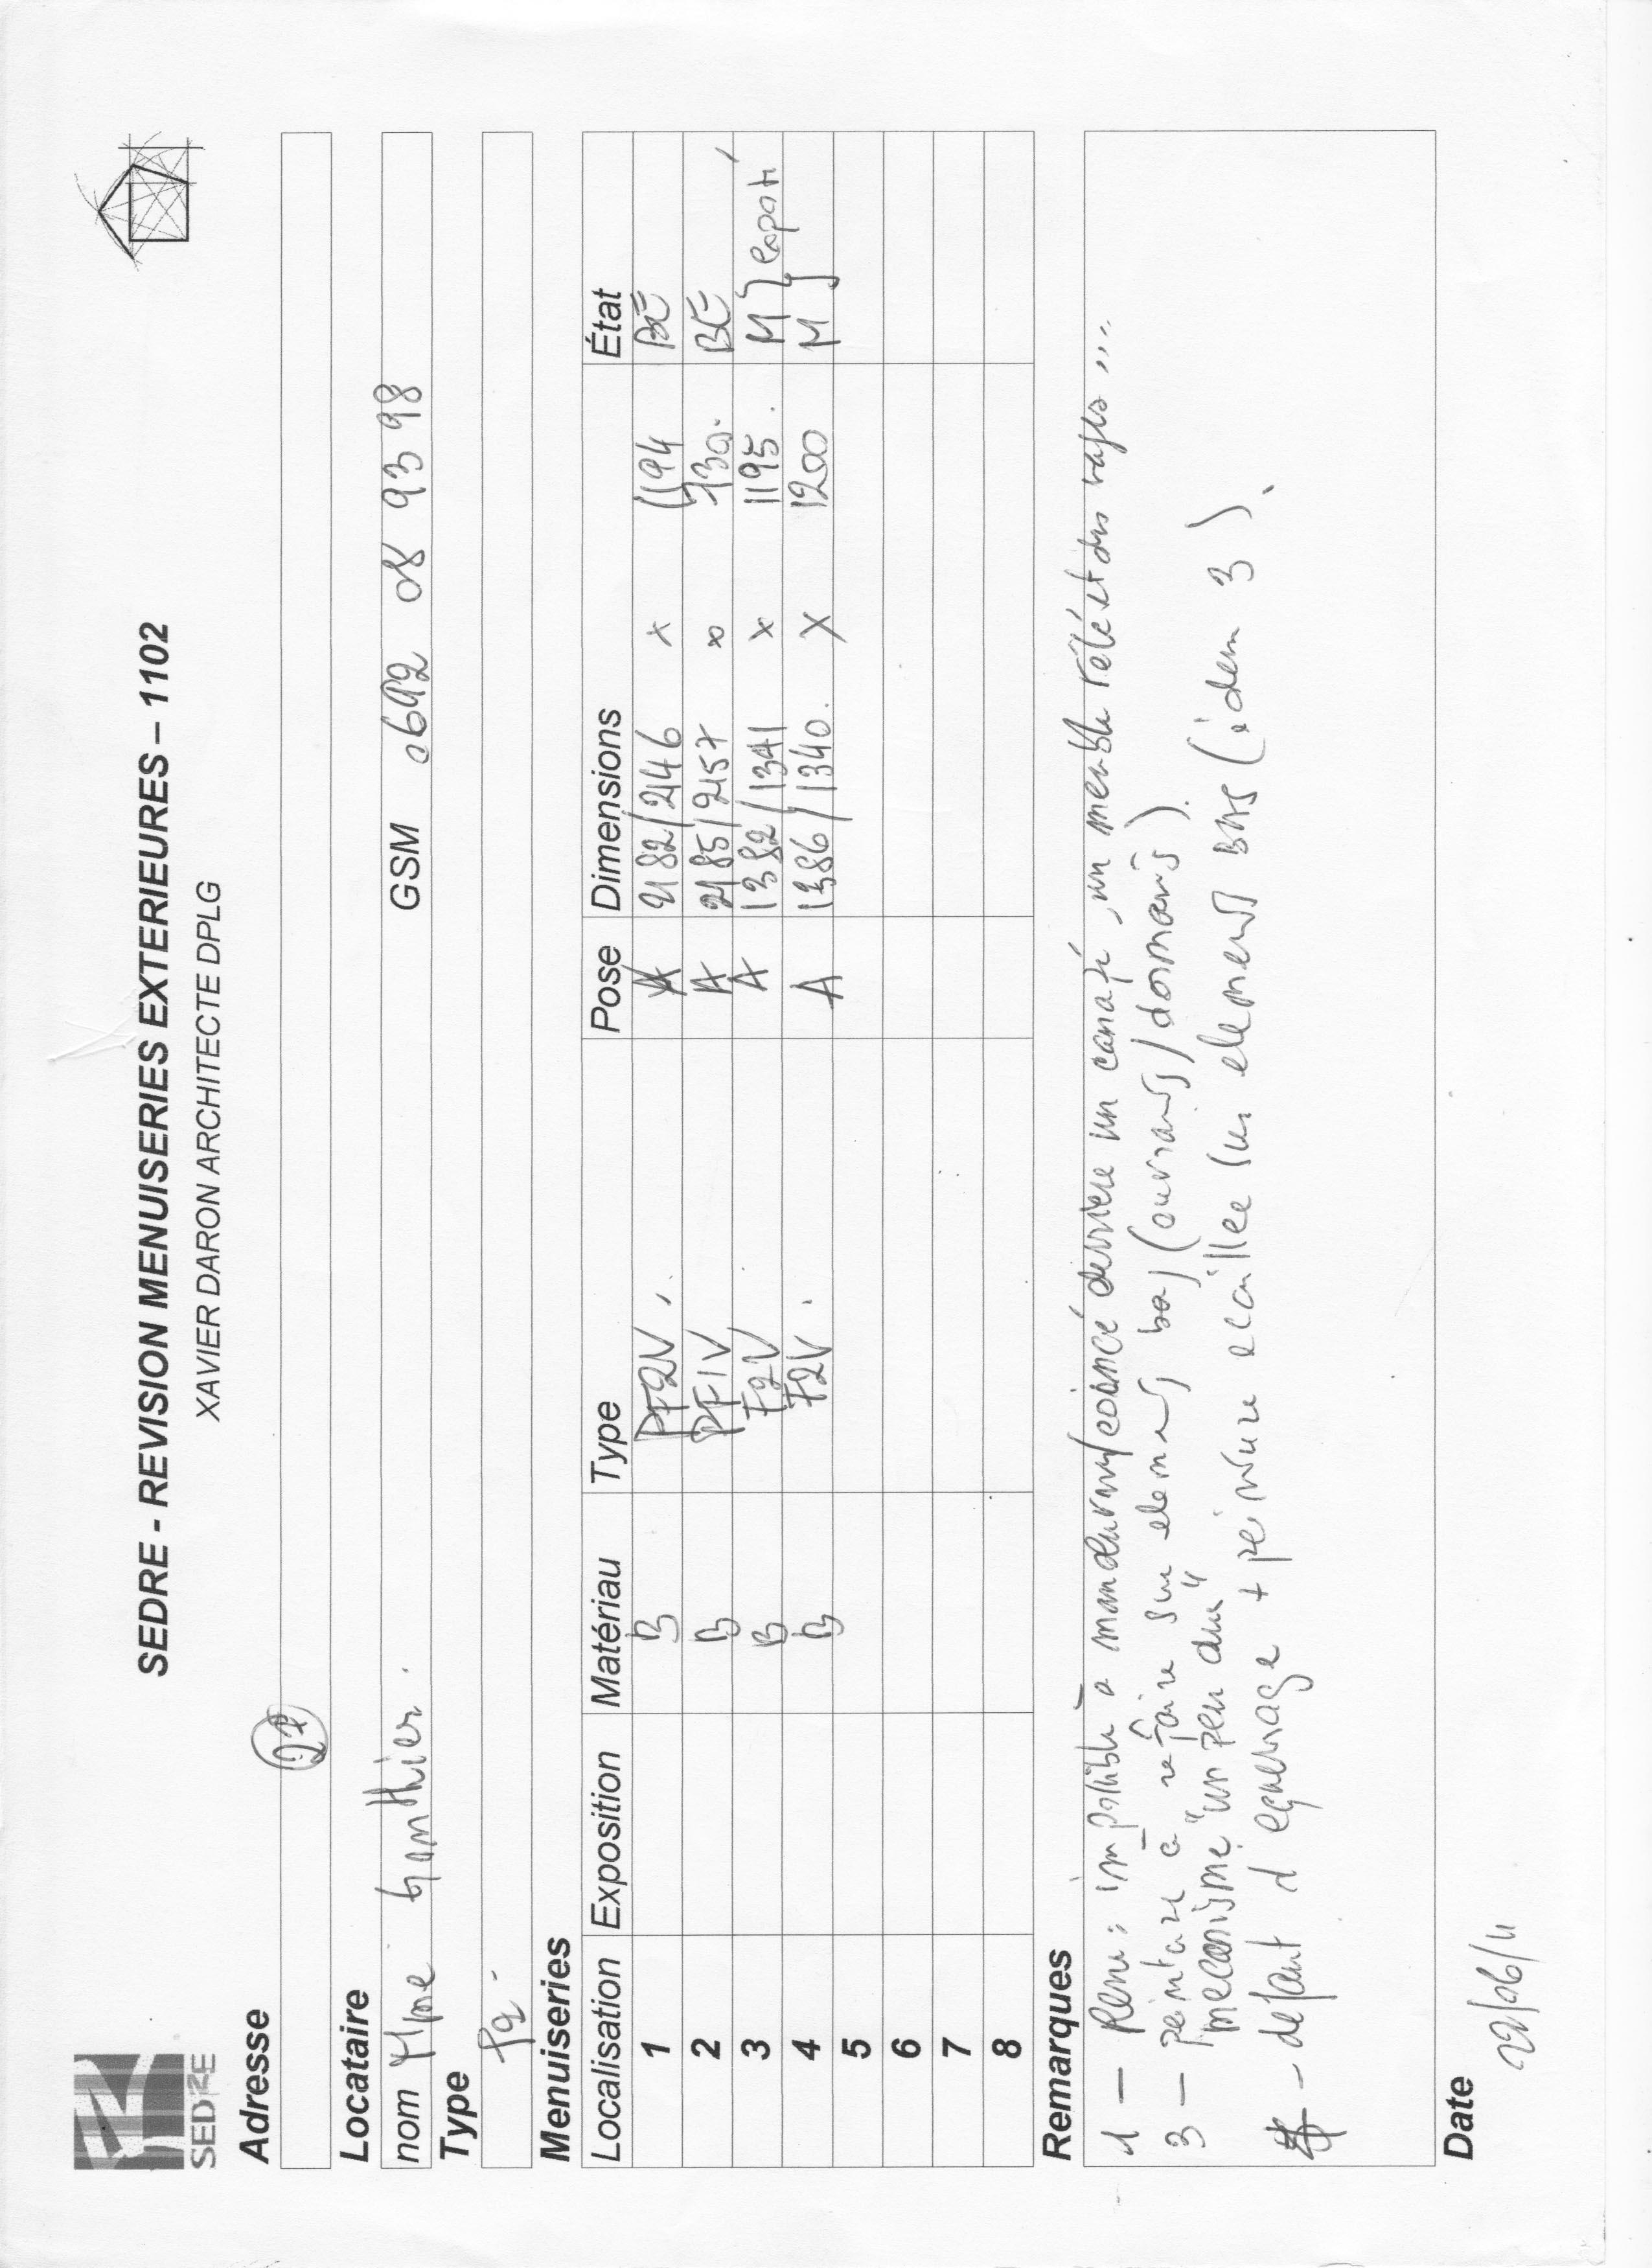 SEDRE
SEDRE - REVISION MENUISERIES EXTERIEURES – 1102
XAVIER DARON ARCHITECTE DPLG
Adresse
27
Locataire
nom Mme Gonthier. GSM 0692 08 93 98
Type
Menuiseries
Localisation Exposition Matériau Type Pose Dimensions État
1 B PF2V. A 2182/2146 x 1194 BE
2 B PF1V A 2185/2157 x 730. BE
3 B F2V A 1382/1341 x 1195. M
4 B F2V. A 1386/1340. X 1200 M
5
6
7
8
Remarques
1 – Rem: impossible à manoeuvrer/coincé derrière un canapé, un meuble télé et des
3 – peinture a refaire sur elements bas (ouvrants/dormants).
mecanisme "un peu dur"
4 – defaut d'equerrage + peinture ecaillee sur elements BAS (idem 3).
Date
22/06/11